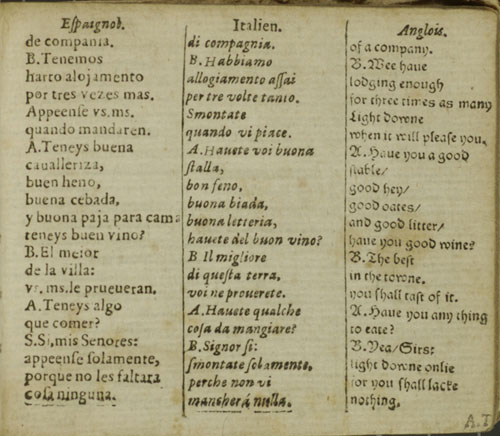 Eſpaignol.
de compania.
B.Tenemos
harto alojamento
por tres vezes mas.
Appeenſe vs.ms.
quando mandaren.
A.Teneys buena
caualleriza,
buen heno,
buena cebada,
y buona paja para cama
teneys buen vino?
B.El meior
de la villa:
vs.ms.le prueueran.
A.Teneys algo
que comer?
S.Si,mis Senores:
appeenſe ſolamente,
porque no les faltara
coſa ninguna.
Italien.
di compagnia.
B.Habbiamo
allogiamento aſſai
per tre volte tanto.
Smontate
quando vi piace.
A.Hauete voi buona
ſtalla,
bon feno,
buona biada,
buona letteria,
hauete del buon vino?
B Il migliore
di queſta terra,
voi ne prouerete.
A.Hauete qualche
coſa da mangiare?
B.Signor ſi:
ſmontate ſolamente,
perche non vi
mancherá nulla.
Anglois.
of a company.
B.Wee haue
lodging enough
for three times as many
Light downe
when it will pleaſe you.
A.Haue you a good
ſtable/
good hey/
good oates/
and good litter/
haue you good wine?
B.The beſt
in the towne.
you ſhall taſt of it.
A.Haue you any thing
to eate?
B.Yea/Sirs:
light downe onlie
for you ſhall lacke
nothing.
A.T